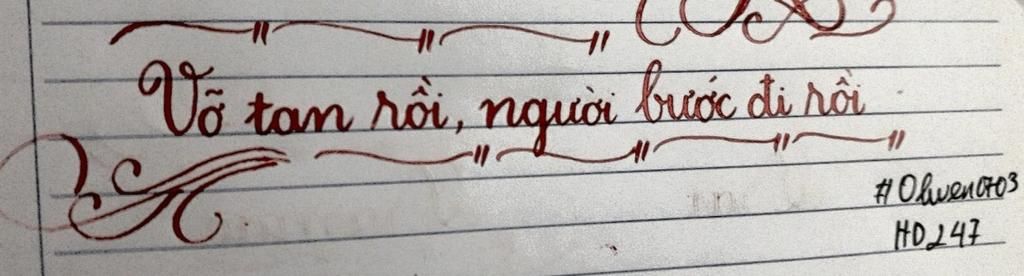 Vỡ tan rồi, người bước đi rồi
#Oliwen0703
HD247